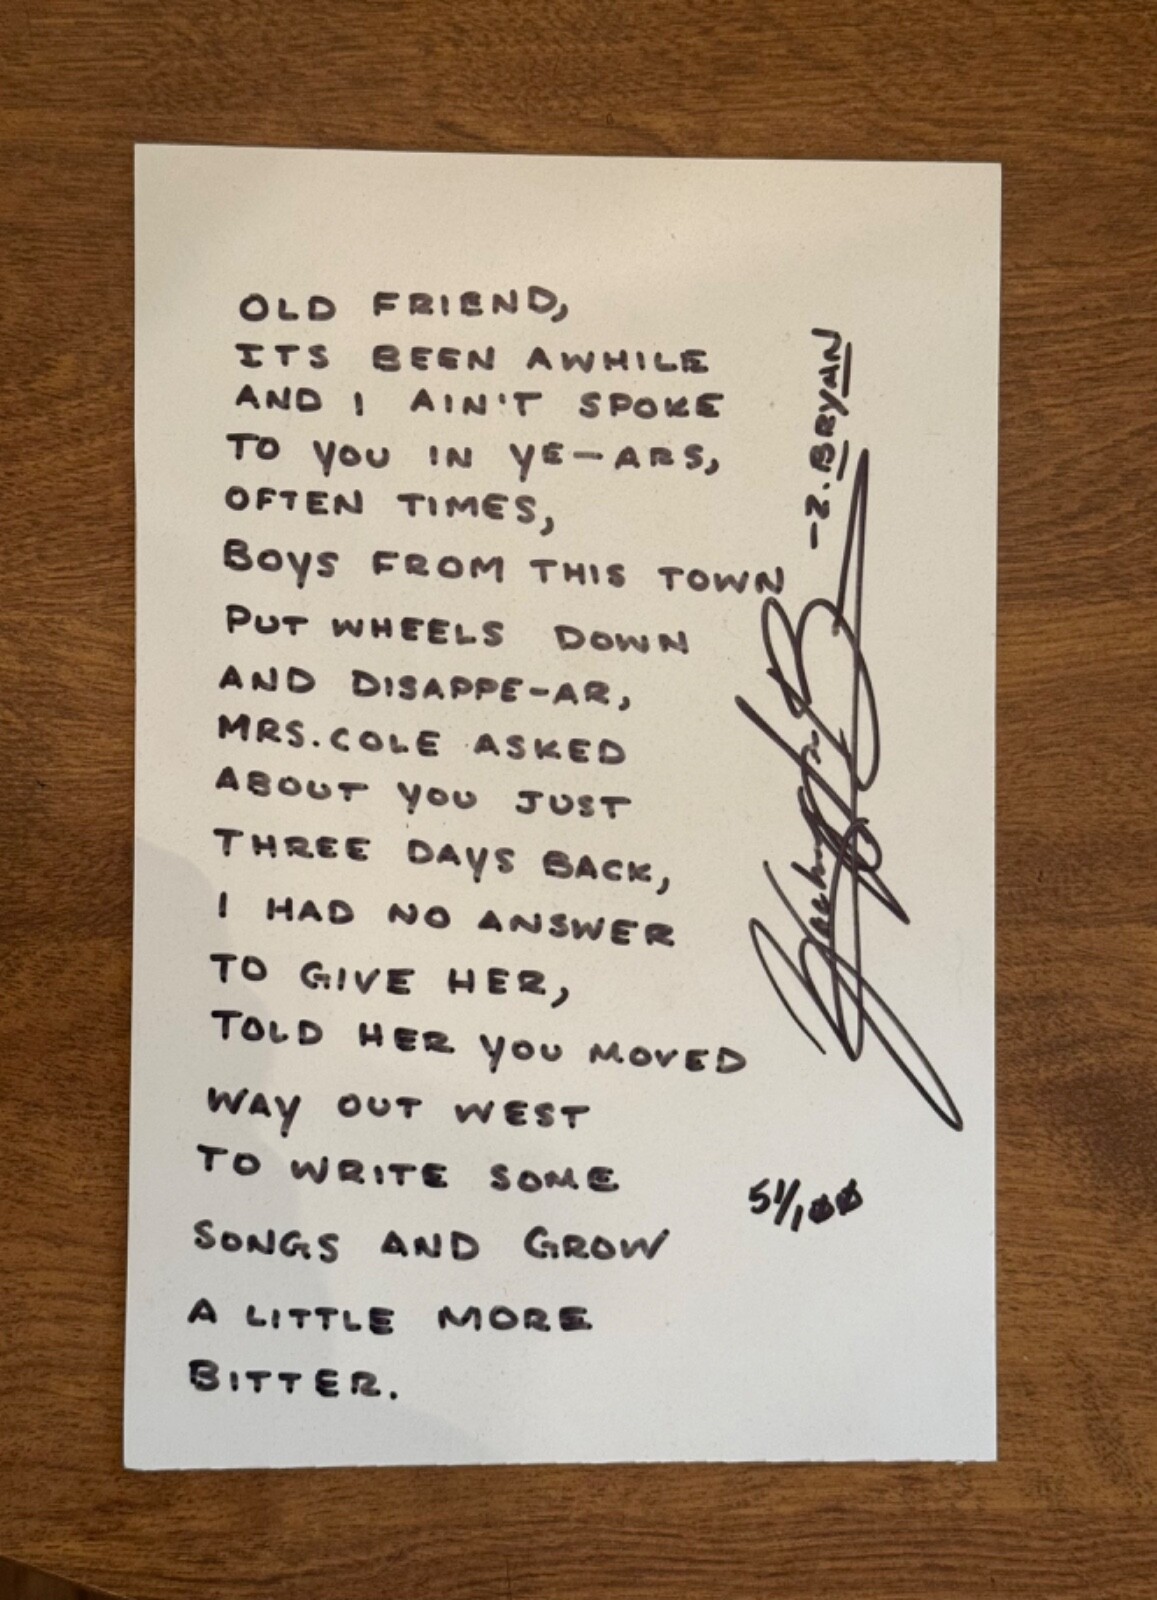 OLD FRIEND,
ITS BEEN AWHILE
AND I AIN'T SPOKE
TO YOU IN YE-ARS,
OFTEN TIMES,
BOYS FROM THIS TOWN
PUT WHEELS DOWN
AND DISAPPE-AR,
MRS. COLE ASKED
ABOUT YOU JUST
THREE DAYS BACK,
I HAD NO ANSWER
TO GIVE HER,
TOLD HER YOU MOVED
WAY OUT WEST
TO WRITE SOME
SONGS AND GROW
A LITTLE MORE
BITTER.
-Z. BRYAN
51/100